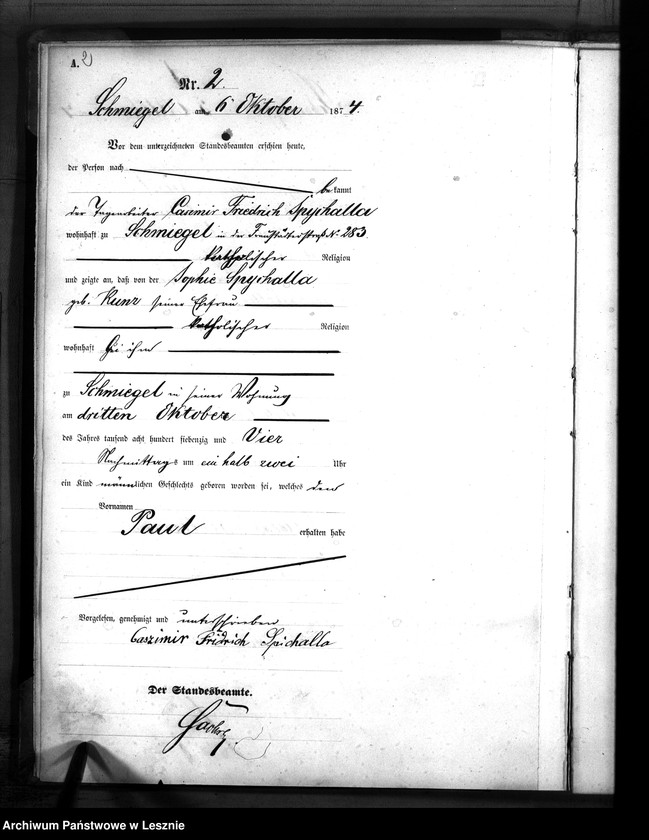 A. 2
Nr. 2
Schmiegel am 6 Oktober 1874.
Vor dem unterzeichneten Standesbeamten erschien heute,
der Person nach
bekannt
der Tagearbeiter Casimir Friedrich Spychalla
wohnhaft zu Schmiegel in der Fraustädterstraße No 283
katholischer Religion
und zeigte an, daß von der Sophie Spychalla
geb. Kunz seiner Ehefrau
katholischer Religion
wohnhaft bei ihm
zu Schmiegel in seiner Wohnung
am dritten Oktober
des Jahres tausend acht hundert siebenzig und Vier
Nachmittags um ein halb zwei Uhr
ein Kind männlichen Geschlechts geboren worden sei, welches den
Vornamen
Paul erhalten habe
Vorgelesen, genehmigt und unterschrieben
Caszimir Fridrich Spichalla
Der Standesbeamte.
Archiwum Państwowe w Lesznie